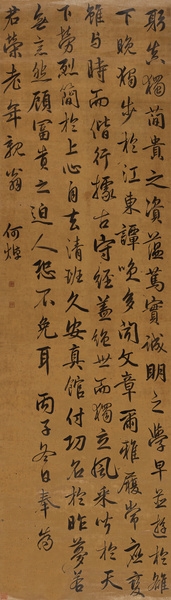 躬真獨簡貴之資蘊篤實誠明之學早並遊於雒
下晚獨步於江東譚噱多聞文章爾雅履常應變
雖與時而偕行據古守經蓋絕世而獨立風采於天
下勞烈簡於上心自去清班久安真館付功名於昨夢若
無言然顧富貴之迫人恐不免耳 丙子冬日奉為
若榮老年親翁 何